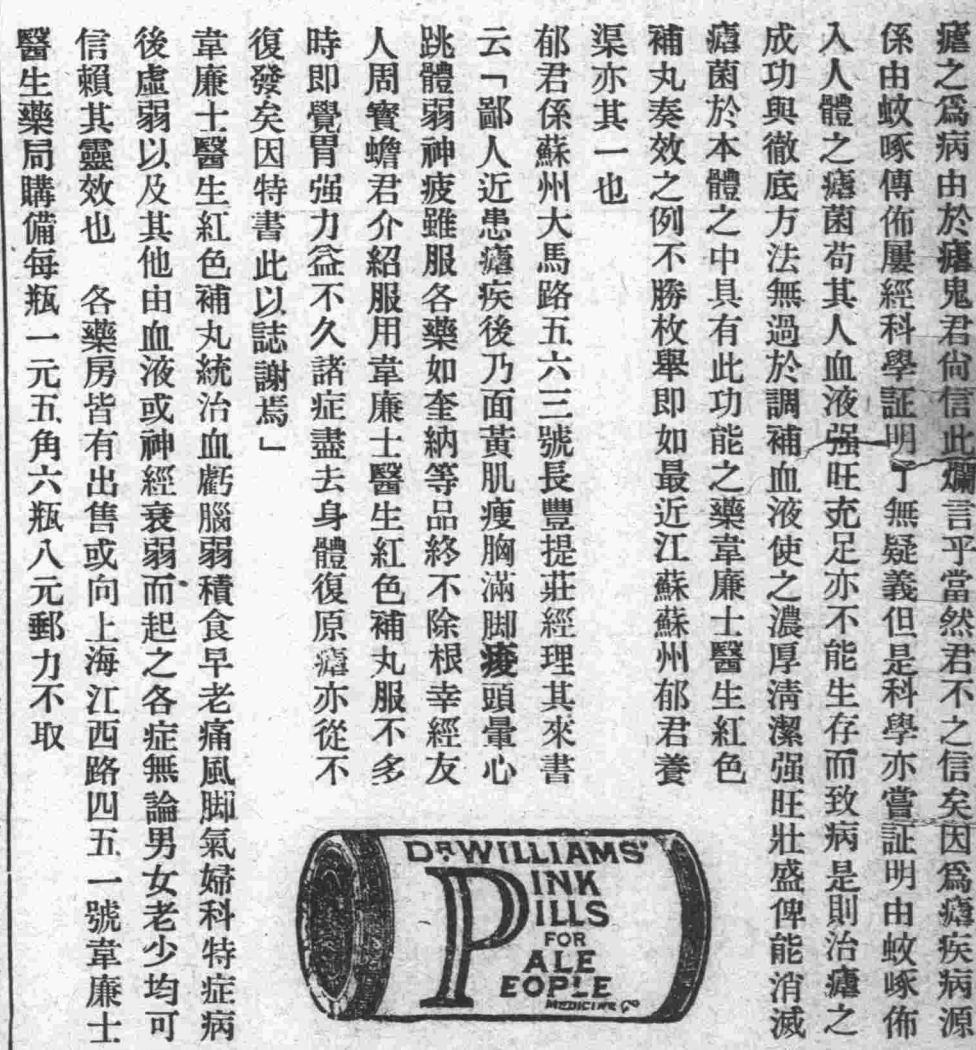 瘧之爲病由於瘧鬼君尙信此爛言乎當然君不之信矣因爲瘧疾病源
係由蚊啄傳佈屢經科學証明了無疑義但是科學亦嘗証明由蚊啄佈
入人體之瘧菌苟其人血液强旺充足亦不能生存而致病是則治瘧之
成功與徹底方法無過於調補血液使之濃厚清潔强旺壯盛俾能消滅
瘧菌於本體之中具有此功能之藥韋廉士醫生紅色
補丸奏效之例不勝枚舉即如最近江蘇蘇州郁君養
渠亦其一也
郁君係蘇州大馬路五六三號長豐提莊經理其來書
云「鄙人近患瘧疾後乃面黃肌瘦胸滿脚痠頭暈心
跳體弱神疲雖服各藥如奎納等品終不除根幸經友
人周賓蟾君介紹服用韋廉士醫生紅色補丸服不多
時即覺胃强力益不久諸症盡去身體復原瘧亦從不
復發矣因特書此以誌謝焉」
韋廉士醫生紅色補丸統治血虧腦弱積食早老痛風脚氣婦科特症病
後虛弱以及其他由血液或神經衰弱而起之各症無論男女老少均可
信賴其靈效也　各藥房皆有出售或向上海江西路四五一號韋廉士
醫生藥局購備每瓶一元五角六瓶八元郵力不取
DR WILLIAMS'
PINK
PILLS
FOR
PALE
PEOPLE
MEDICINE CO